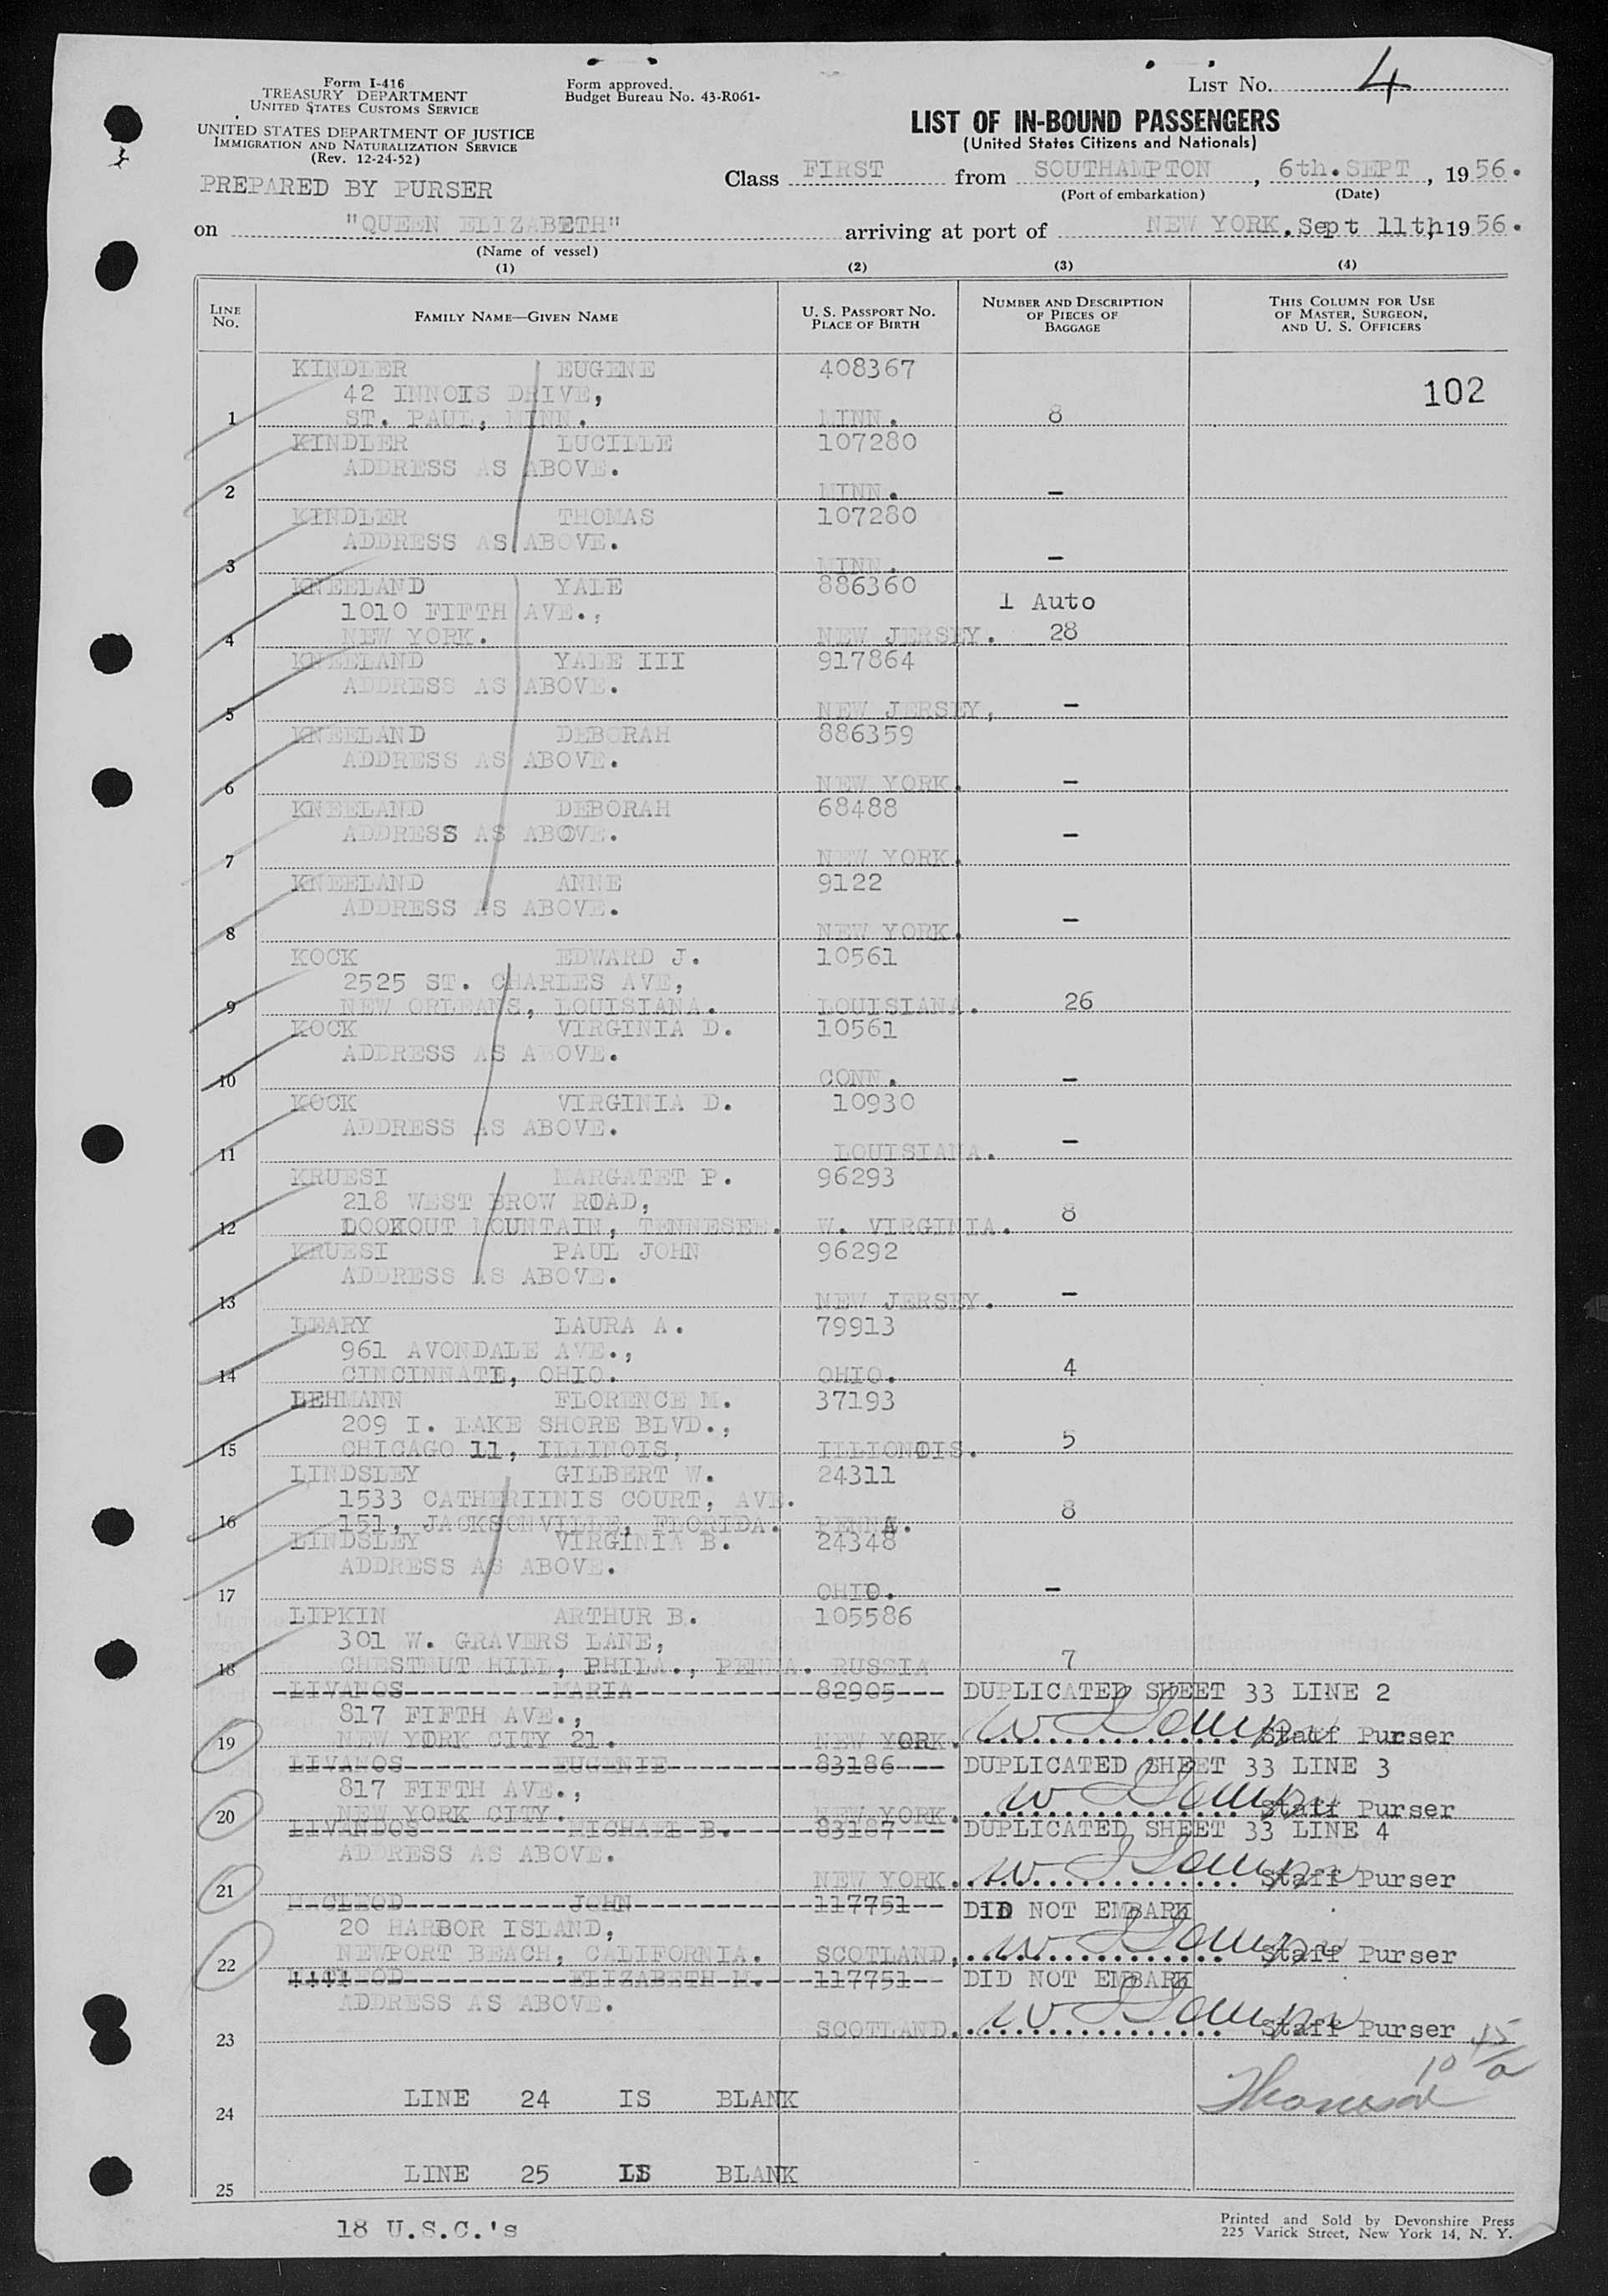 Form I-416
TREASURY DEPARTMENT
UNITED STATES CUSTOMS SERVICE
UNITED STATES DEPARTMENT OF JUSTICE
IMMIGRATION AND NATURALIZATION SERVICE
(Rev. 12-24-52)
PREPARED BY PURSER
Form approved.
Budget Bureau No. 43-R061-
LIST NO. 4
LIST OF IN-BOUND PASSENGERS
(United States Citizens and Nationals)
Class FIRST from SOUTHAMPTON, 6th.SEPT, 1956.
(Port of embarkation) (Date)
on "QUEEN ELIZABETH" arriving at port of NEW YORK.Sept 11th, 1956.
(Name of vessel)
(1) (2) (3) (4)
LINE NO. FAMILY NAME—GIVEN NAME U. S. PASSPORT NO. PLACE OF BIRTH NUMBER AND DESCRIPTION OF PIECES OF BAGGAGE THIS COLUMN FOR USE OF MASTER, SURGEON, AND U. S. OFFICERS
KINDLER EUGENE 408367
42 INNOIS DRIVE, 102
1 ST. PAUL, MINN. MINN. 8
KINDLER LUCILLE 107280
ADDRESS AS ABOVE.
2 MINN. -
KINDLER THOMAS 107280
ADDRESS AS ABOVE.
3 MINN. -
KNEELAND YALE 886360
1010 FIFTH AVE., 1 Auto
4 NEW YORK. NEW JERSEY. 28
KNEELAND YALE III 917864
ADDRESS AS ABOVE.
5 NEW JERSEY, -
KNEELAND DEBORAH 886359
ADDRESS AS ABOVE.
6 NEW YORK. -
KNEELAND DEBORAH 68488
ADDRESS AS ABOVE.
7 NEW YORK. -
KNEELAND ANNE 9122
ADDRESS AS ABOVE.
8 NEW YORK. -
KOCK EDWARD J. 10561
2525 ST. CHARLES AVE,
9 NEW ORLEANS, LOUISIANA. LOUISIANA. 26
KOCK VIRGINIA D. 10561
ADDRESS AS ABOVE.
10 CONN. -
KOCK VIRGINIA D. 10930
ADDRESS AS ABOVE.
11 LOUISIANA. -
KRUESI MARGATET P. 96293
218 WEST BROW ROAD,
12 LOOKOUT MOUNTAIN, TENNESEE. W. VIRGINIA. 8
KRUESI PAUL JOHN 96292
ADDRESS AS ABOVE.
13 NEW JERSEY. -
LEARY LAURA A. 79913
961 AVONDALE AVE.,
14 CINCINNATI, OHIO. OHIO. 4
LEHMANN FLORENCE M. 37193
209 I. LAKE SHORE BLVD.,
15 CHICAGO 11, ILLINOIS, ILLIONOIS. 5
LINDSLEY GILBERT W. 24311
1533 CATHERIINIS COURT, AVE.
16 151, JACKSONVILLE, FLORIDA. PENNA. 8
LINDSLEY VIRGINIA B. 24348
ADDRESS AS ABOVE.
17 OHIO. -
LIPKIN ARTHUR B. 105586
301 W. GRAVERS LANE,
18 CHESTNUT HILL, PHILA., PENNA. RUSSIA 7
LIVANOS MARIA 82905 DUPLICATED SHEET 33 LINE 2
817 FIFTH AVE.,
19 NEW YORK CITY 21. NEW YORK. Staff Purser
LIVANOS EUGENIE 83186 DUPLICATED SHEET 33 LINE 3
817 FIFTH AVE.,
20 NEW YORK CITY. NEW YORK. Staff Purser
LIVANDOS MICHAEL B. 83187 DUPLICATED SHEET 33 LINE 4
ADDRESS AS ABOVE.
21 NEW YORK. Staff Purser
McCLEOD JOHN 117751 DID NOT EMBARK
20 HARBOR ISLAND,
22 NEWPORT BEACH, CALIFORNIA. SCOTLAND, Staff Purser
ELIZABETH M. 117751 DID NOT EMBARK
ADDRESS AS ABOVE.
23 SCOTLAND. Staff Purser
24 LINE 24 IS BLANK
25 LINE 25 IS BLANK
18 U.S.C.'s
Printed and Sold by Devonshire Press
225 Varick Street, New York 14, N. Y.